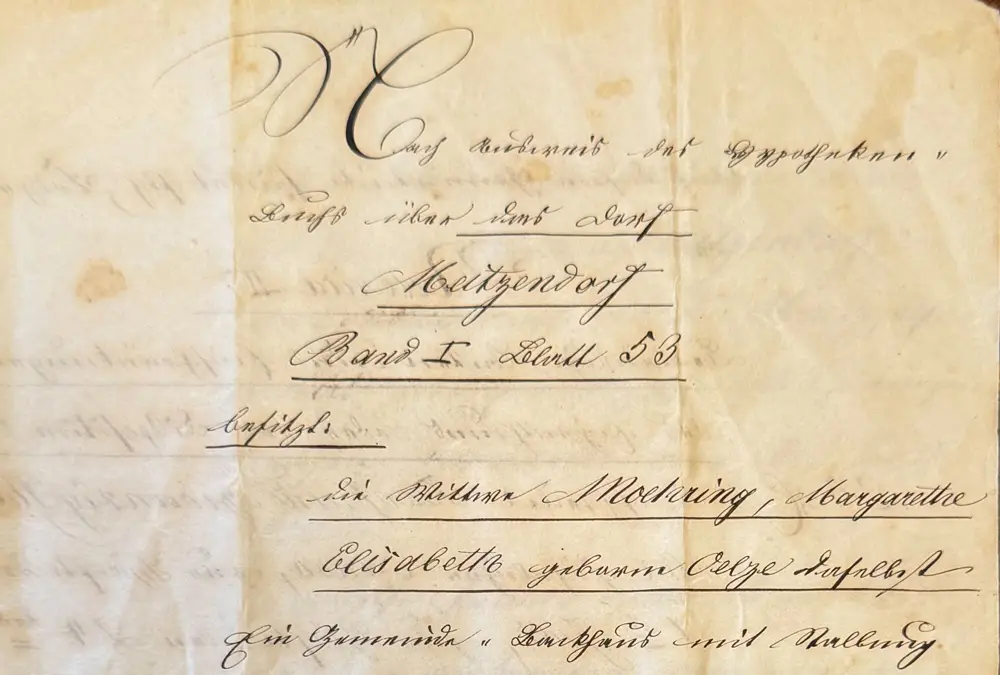 Nach Ausweis des Hypotheken„
Buchs über das Dorf
Meitzendorf
Band I Blatt 53
besitzt:
die Wittwe Moehring, Margarethe
Elisabeth geborne Oelze daselbst
Ein Gemeinde„Backhaus mit Stallung